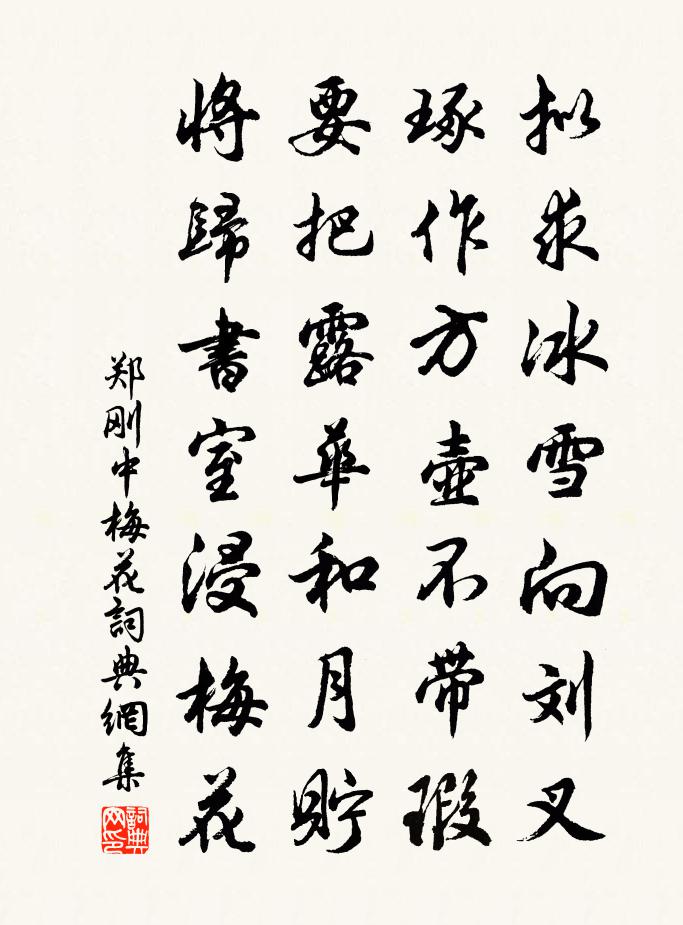 拟求冰雪向刘叉
琢作方壺不带瑕
要把露華和月貯
将歸書室浸梅花
郑刚中梅花詞典網集
詞典网印